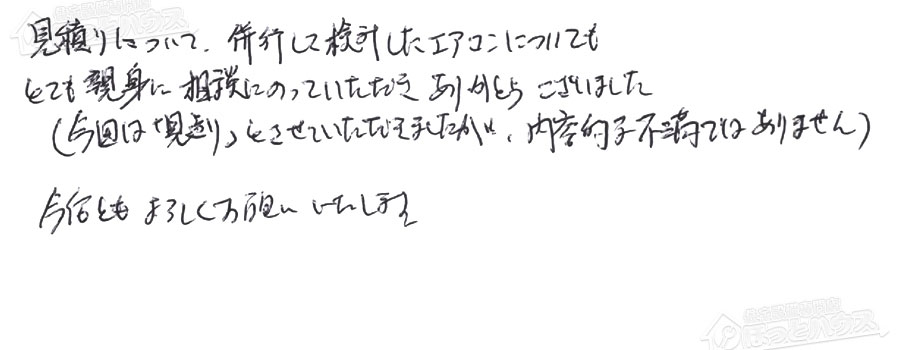 見積りについて、併行して検討したエアコンについても
とても親身に相談にのっていただき ありがとう ございました
(今回は「見送り」とさせていただきましたが、内容的な不満ではありません)
今後とも よろしくお願い いたします
ほっとハウス